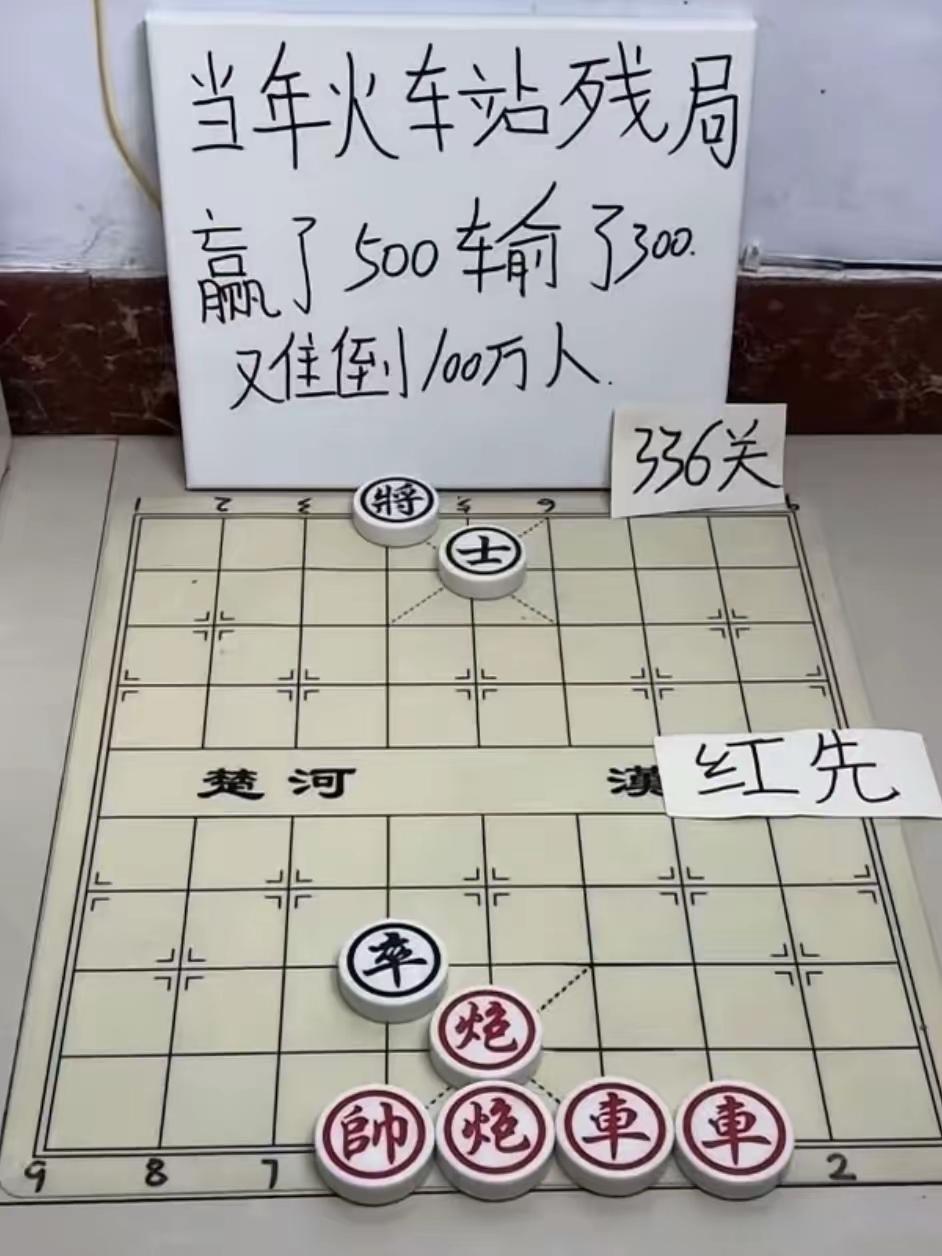 当年火车站残局
赢了500输了300.
难倒100万人.
336关
1 2 3 5 6 9
將
士
楚河 漢
红先
卒
炮
帥 炮 車 車
9 8 7 2